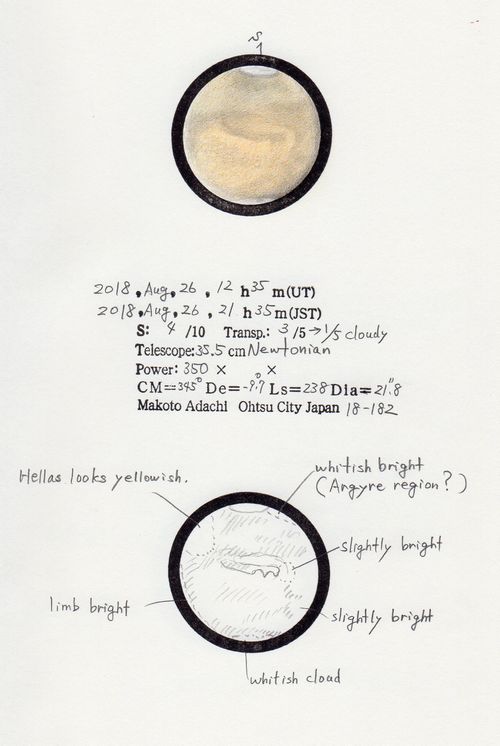 S
2018, Aug, 26, 12 h 35 m (UT)
2018, Aug, 26, 21 h 35 m (JST)
S: 4 /10 Transp.: 3 /5 → 1/5 cloudy
Telescope: 35.5 cm Newtonian
Power: 350 × ×
CM=345° De=-9.°7 Ls=238 Dia=21."8
Makoto Adachi Ohtsu City Japan 18-182
Hellas looks yellowish.
whitish bright
(Argyre region?)
slightly bright
limb bright
slightly bright
whitish cloud